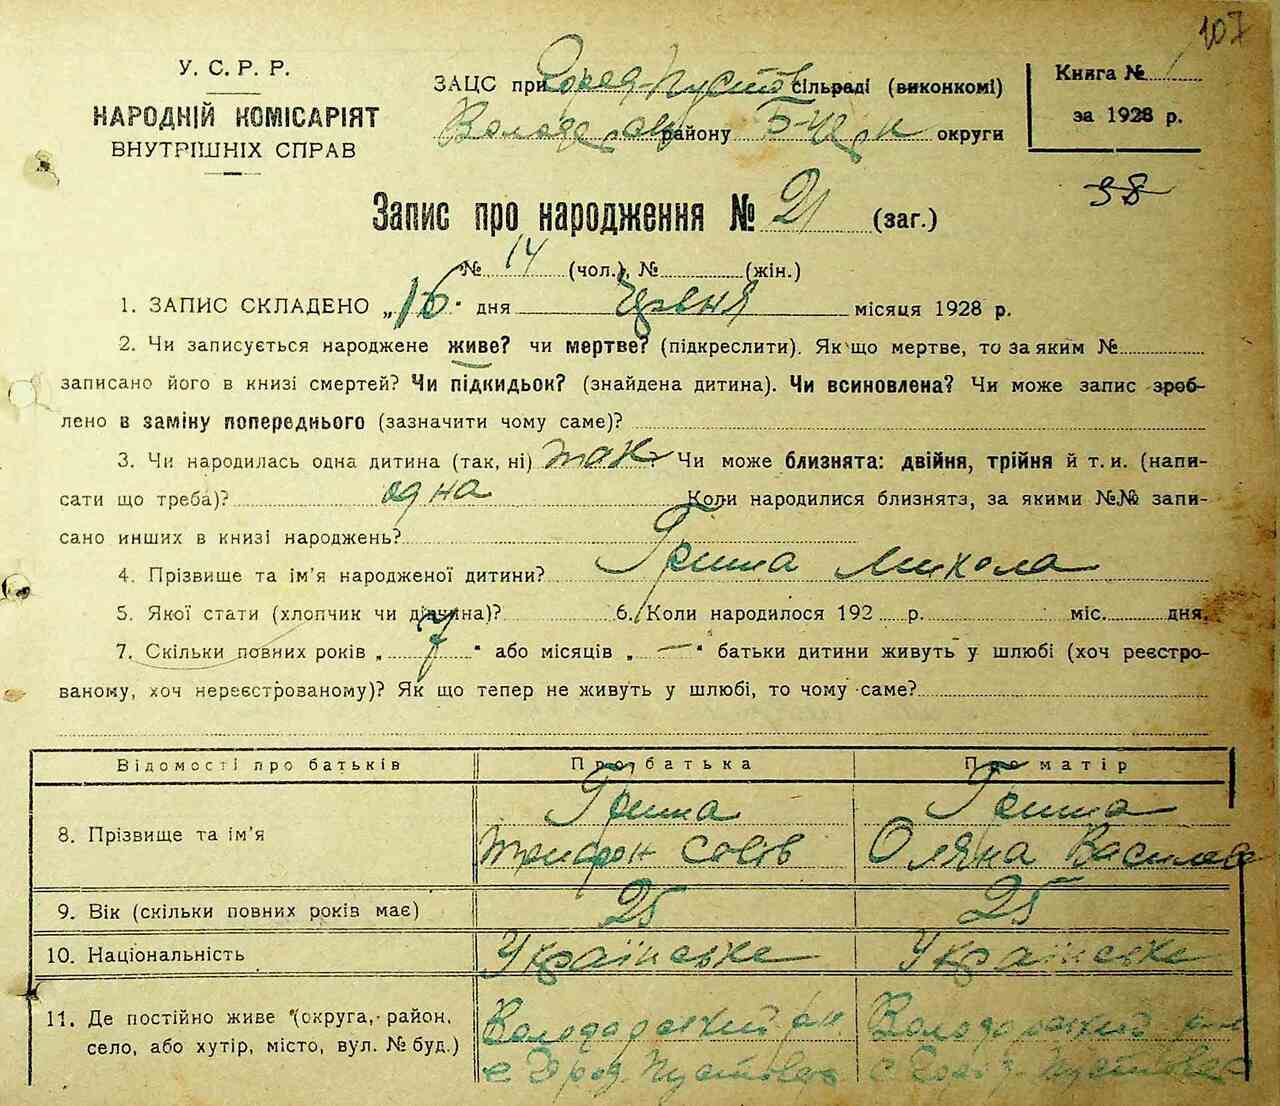 107
У. С. Р. Р.
НАРОДНІЙ КОМІСАРІЯТ
ВНУТРІШНІХ СПРАВ
ЗАЦС при Город-Пустов сільраді (виконкомі)
Володар району Б-Церк округи
Книга № 1
за 1928 р.
38
Запис про народження № 21 (заг.)
№ 14 (чол.), № (жін.)
1. ЗАПИС СКЛАДЕНО „16" дня Червня місяця 1928 р.
2. Чи записується народжене живе? чи мертве? (підкреслити). Як що мертве, то за яким №
записано його в книзі смертей? Чи підкидьок? (знайдена дитина). Чи всиновлена? Чи може запис зроб-
лено в заміну попереднього (зазначити чому саме)?
3. Чи народилась одна дитина (так, ні) так? Чи може близнята: двійня, трійня й т. и. (напи-
сати що треба)? одна Коли народилися близнята, за якими №№ запи-
сано инших в книзі народжень?
4. Прізвище та ім'я народженої дитини? Грита Микола
5. Якої стати (хлопчик чи дівчина)? 6. Коли народилося 192 р. міс. дня.
7. Скільки повних років „ 7 " або місяців „ — " батьки дитини живуть у шлюбі (хоч реєстро-
ваному, хоч нереєстрованому)? Як що тепер не живуть у шлюбі, то чому саме?
Відомості про батьків Про батька Про матір
8. Прізвище та ім'я Грита Грита
Трифон Савів Оляна Василева
9. Вік (скільки повних років має) 25 25
10. Національність Українське Українське
11. Де постійно живе (округа, район, Володарський р-н Володарський р-н
село, або хутір, місто, вул. № буд.) с Город. Пустовар с Город. Пустовар